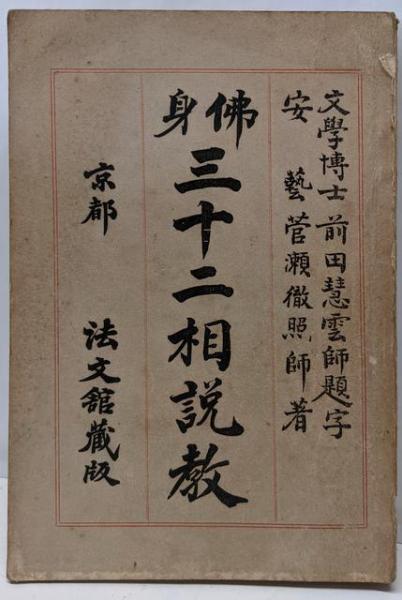 文學博士前田慧雲師題字
安藝菅瀬徹照師著
佛身
三十二相説教
京都 法文舘藏版